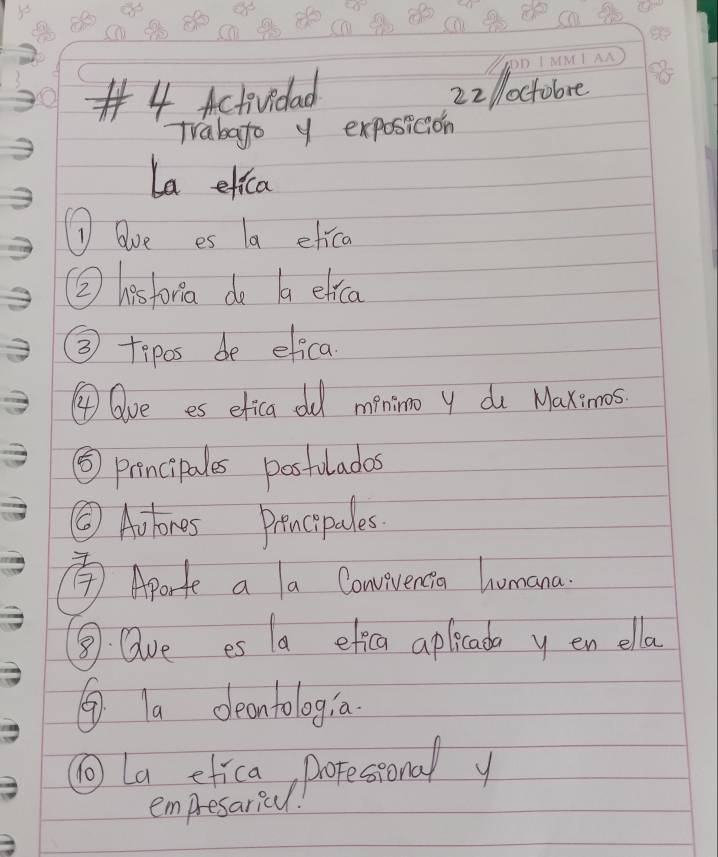 DD | MM | AA
# 4 Actividad 22//octubre
Trabajo y exposición
La etica
① Que es la etica
② historia de la etica
③ tipos de etica.
④ Que es etica del minimo y de Maximos.
⑤ principales postulados
⑥ Autores principales.
7
⑦ Aporte a la Convivencia humana.
⑧. Que es la etica aplicada y en ella
⑨. la deontología.
⑩ La etica, profesional y
empresarial.